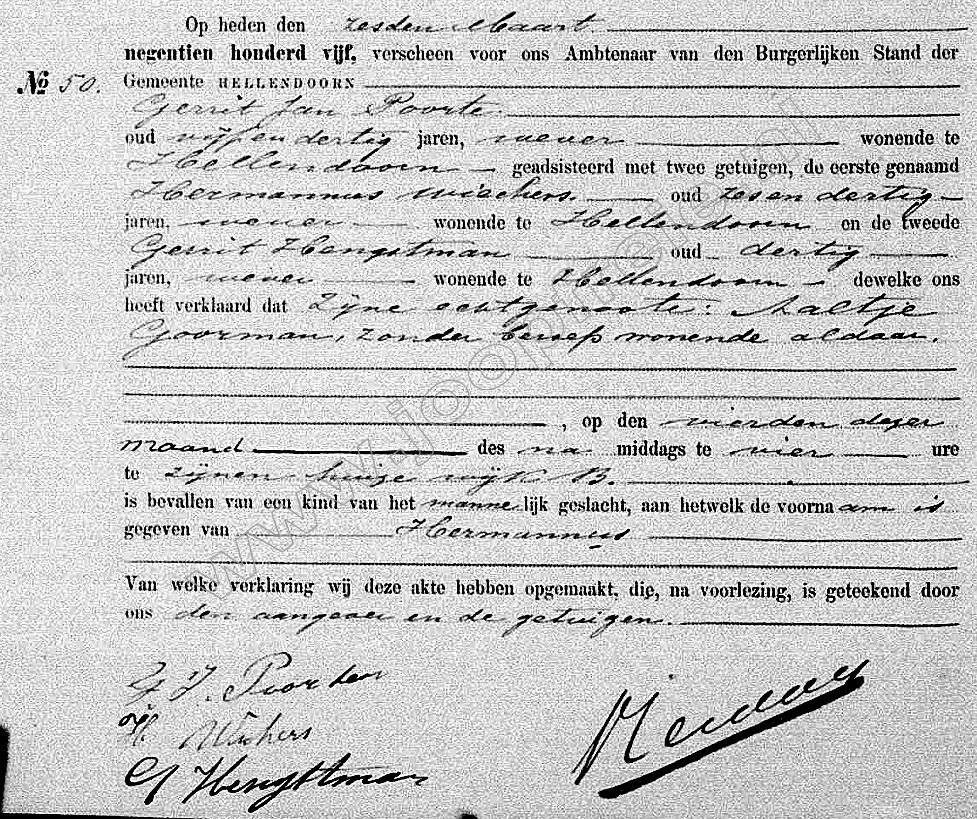 Op heden den zesden Maart
negentien honderd vijf, verscheen voor ons Ambtenaar van den Burgerlijken Stand der
No 50. Gemeente HELLENDOORN
Gerrit Jan Poorte
oud vijf en dertig jaren, wever wonende te
Hellendoorn geadsisteerd met twee getuigen, de eerste genaamd
Hermannus Wiechers. oud zes en dertig
jaren, wever wonende te Hellendoorn en de tweede
Gerrit Hengstman oud dertig
jaren, wever wonende te Hellendoorn dewelke ons
heeft verklaard dat Zijne echtgenoote: Aaltje
Goorman, zonder beroep wonende aldaar.
, op den vierden dezer
maand des na middags te vier ure
te zijnen huize wijk B.
is bevallen van een kind van het mannelijk geslacht, aan hetwelk de voornaam is
gegeven van Hermannus
Van welke verklaring wij deze akte hebben opgemaakt, die, na voorlezing, is geteekend door
ons den aangever en de getuigen.
G J. Poorte
H. Wichers
G Hengstman